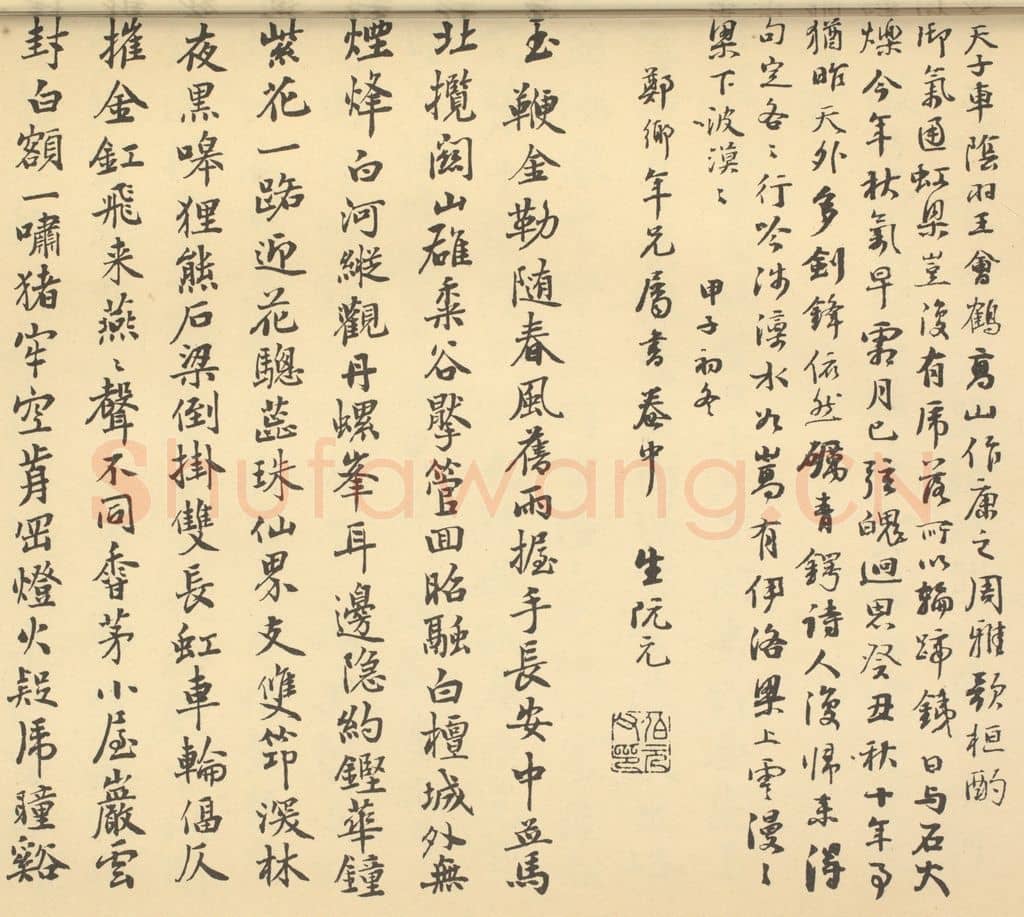 天子車蔭羽王會鶴高山作康之周雅歌桓酌
御氣通虹梁豈復有席落所以輪蹄鐵日與石大
爍今年秋氣早霜月已弦魄迴思癸丑秋十年事
猶昨天外多劍鋒依然礪青鍔詩人復歸來得
句定各〻行吟涉濡水如嵩有伊洛梁上雲漫〻
梁下波漠〻 甲子初冬
鄭鄉年兄屬書 菴中 生阮元
玉鞭金勒随春風舊雨握手長安中並馬
北攬闗山雄桑谷擊管回昭融白檀城外無
煙烽白河縱觀丹螺峯耳邊隐約鏗華鐘
紫花一路迎花驄蕊珠仙界支雙笻深林
夜黑嗥狸熊石梁倒掛雙長虹車輪偪仄
摧金釭飛来燕〻聲不同香茅小屋巖雲
封白額一嘯猪牢空肯罶燈火疑虎瞳谿
Shufawang.CN